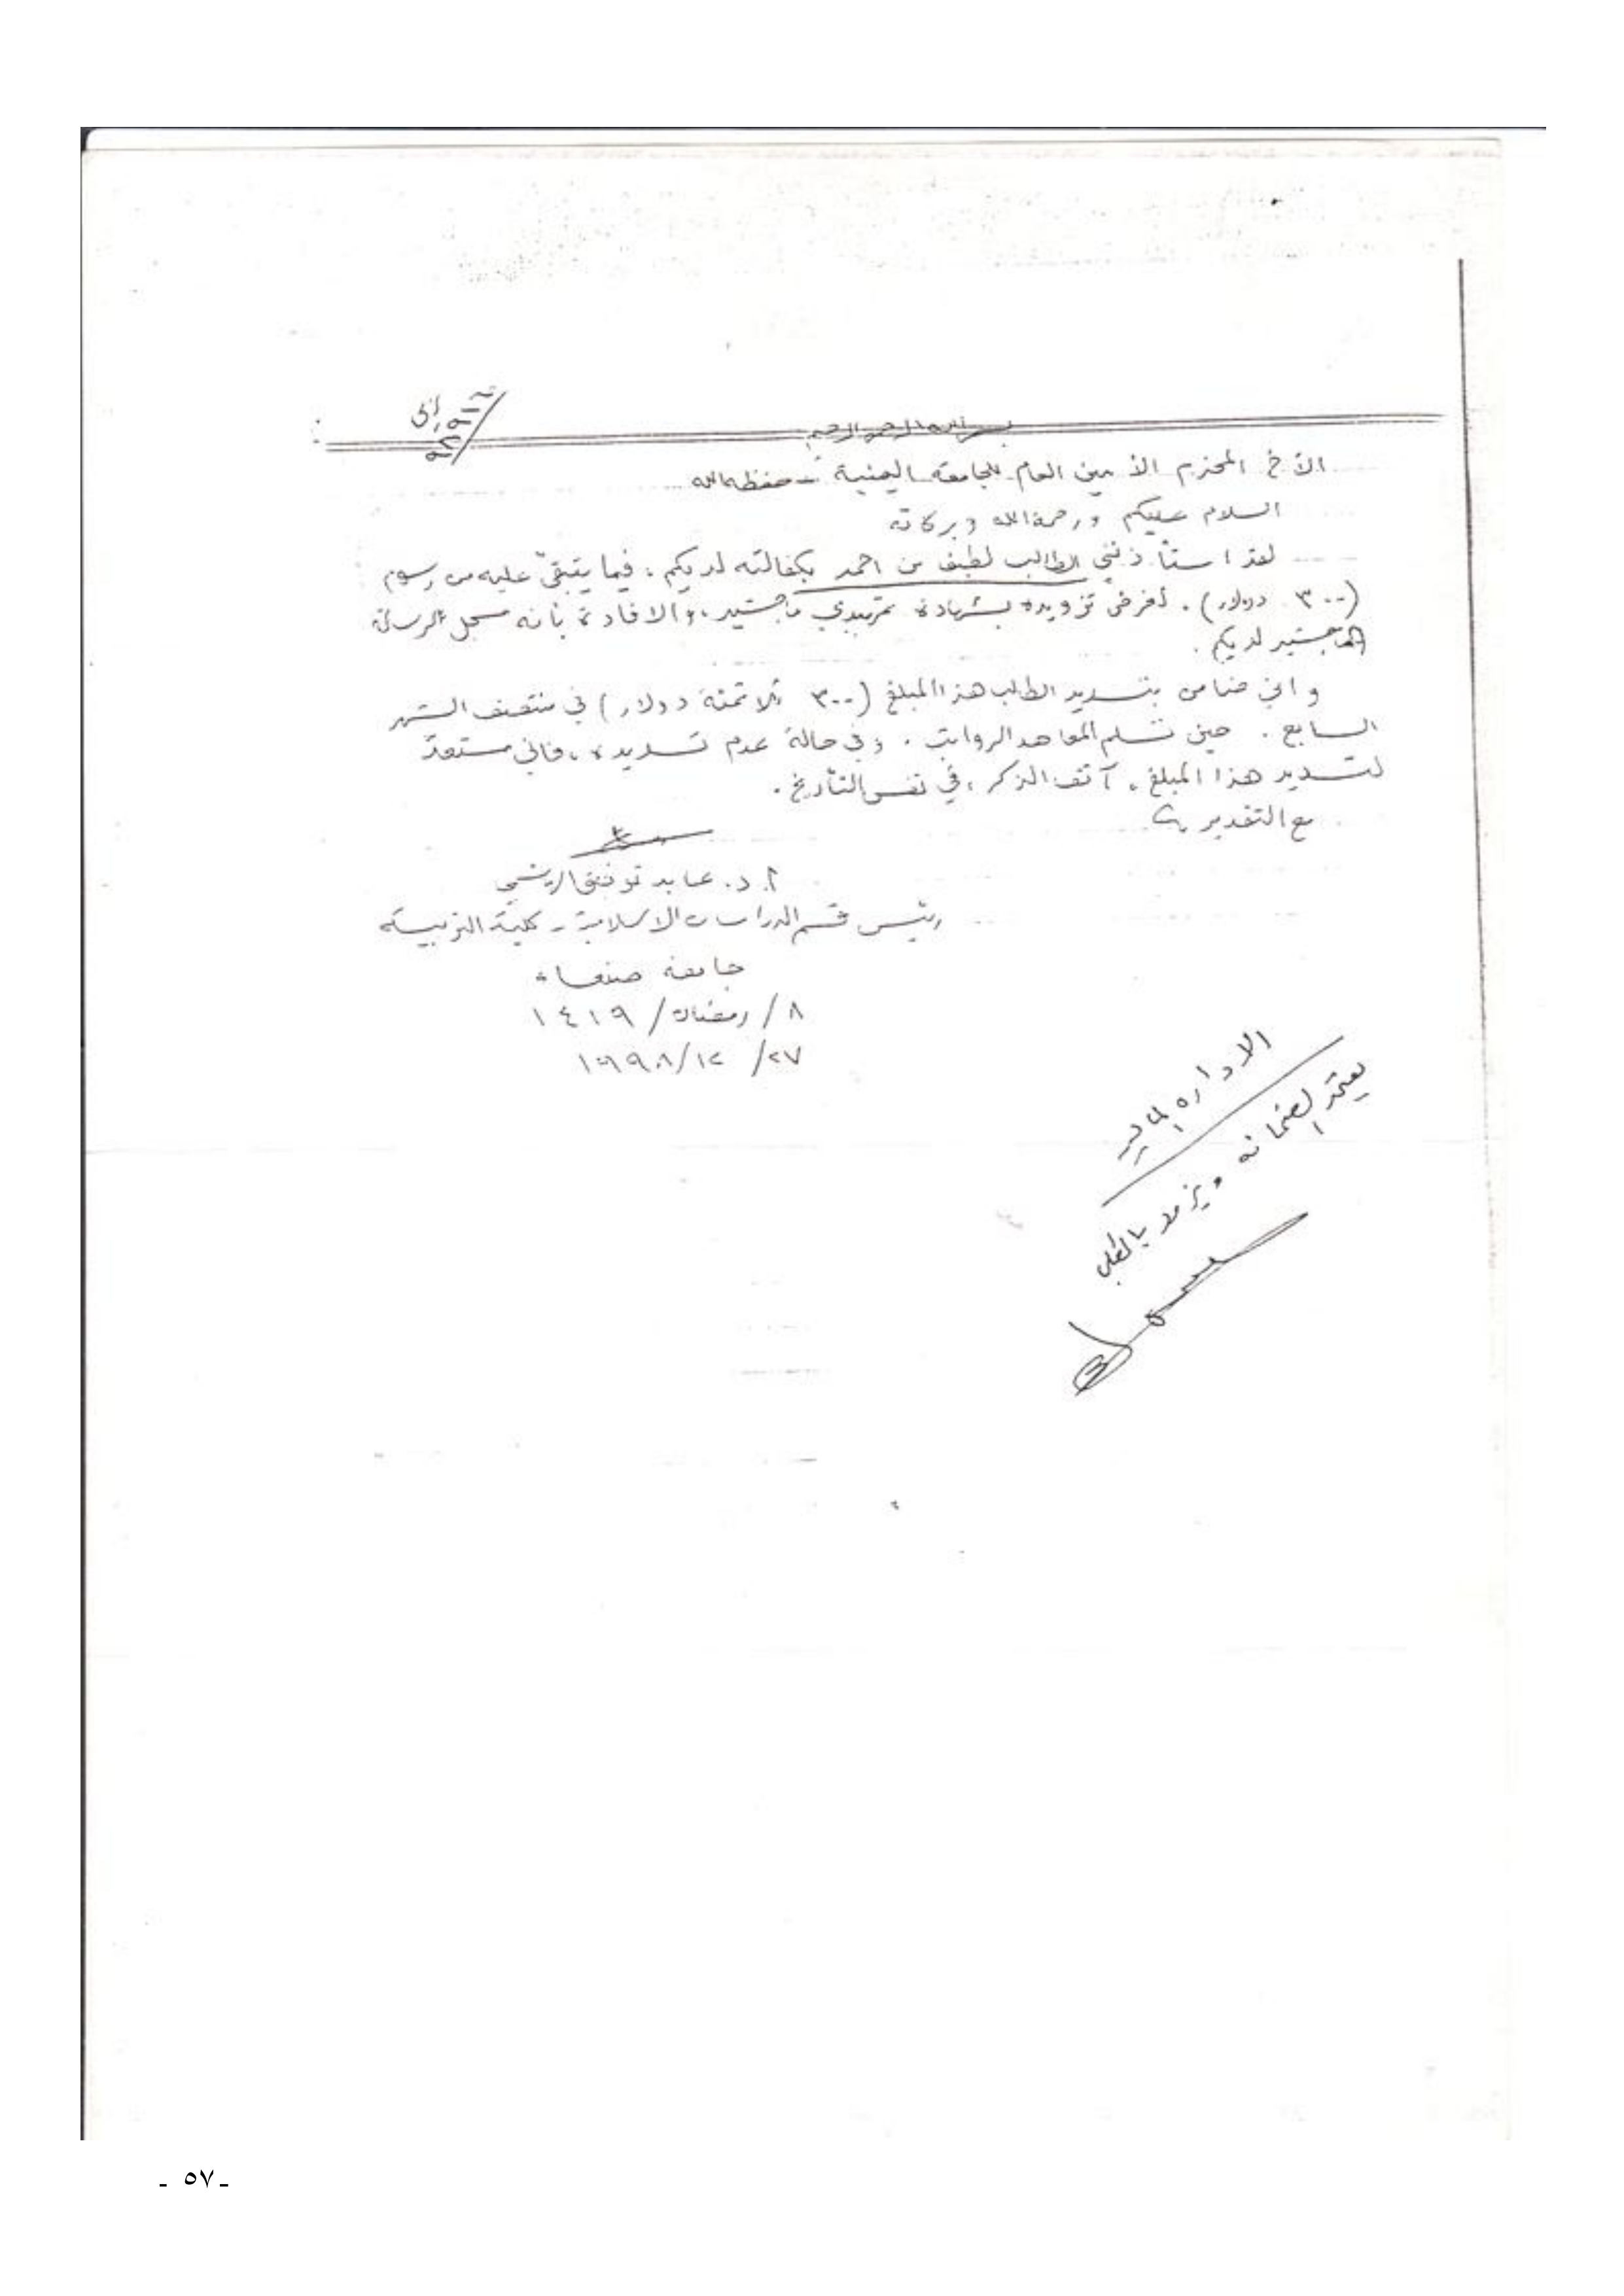 بسم الله الرحمن الرحيم
الأخ المحترم الأمين العام للجامعة اليمنية - حفظه الله
السلام عليكم ورحمة الله وبركاته
لقد استأذنني الطالب لطيف بن احمد بكفالته لديكم، فيما يتبقى عليه من رسوم
(٣٠٠ دولار). لغرض تزويده بشهادة تمهيدي ماجستير، والافادة بأنه مسجل لرسالة
الماجستير لديكم.
واني ضامن بتسديد الطالب هذا المبلغ (٣٠٠ ثلاثمئة دولار) في منتصف الشهر
السابع. حين تسلم المعاهد الرواتب. وفي حالة عدم تسديده، فاني مستعد
لتسديد هذا المبلغ، آنف الذكر، في نفس التأريخ.
مع التقدير
أ. د. عابد توفيق
رئيس قسم الدراسات الاسلامية - كلية التربية
جامعة صنعاء
٨ / رمضان / ١٤١٩
٢٧ / ١٢ / ١٩٩٨
الادارة المالية
يعتمد الضمانة
- ٥٧ -